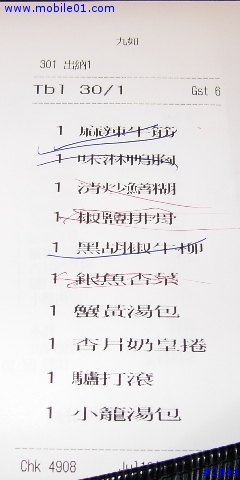 www.mobile01.com
九如
301 出納1
Tbl 30/1 Gst 6
1 麻辣牛筋
1 味淋鴨胸
1 清炒鱔糊
1 椒鹽排骨
1 黑胡椒牛柳
1 銀魚杏菜
1 蟹黃湯包
1 杏片奶皇捲
1 驢打滾
1 小籠湯包
Chk 4908